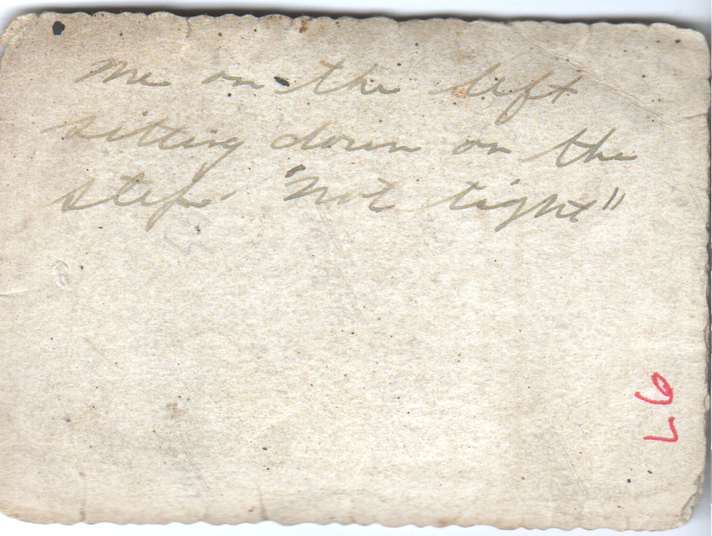 Me on the left
sitting down on the
step "Not tight"
L6